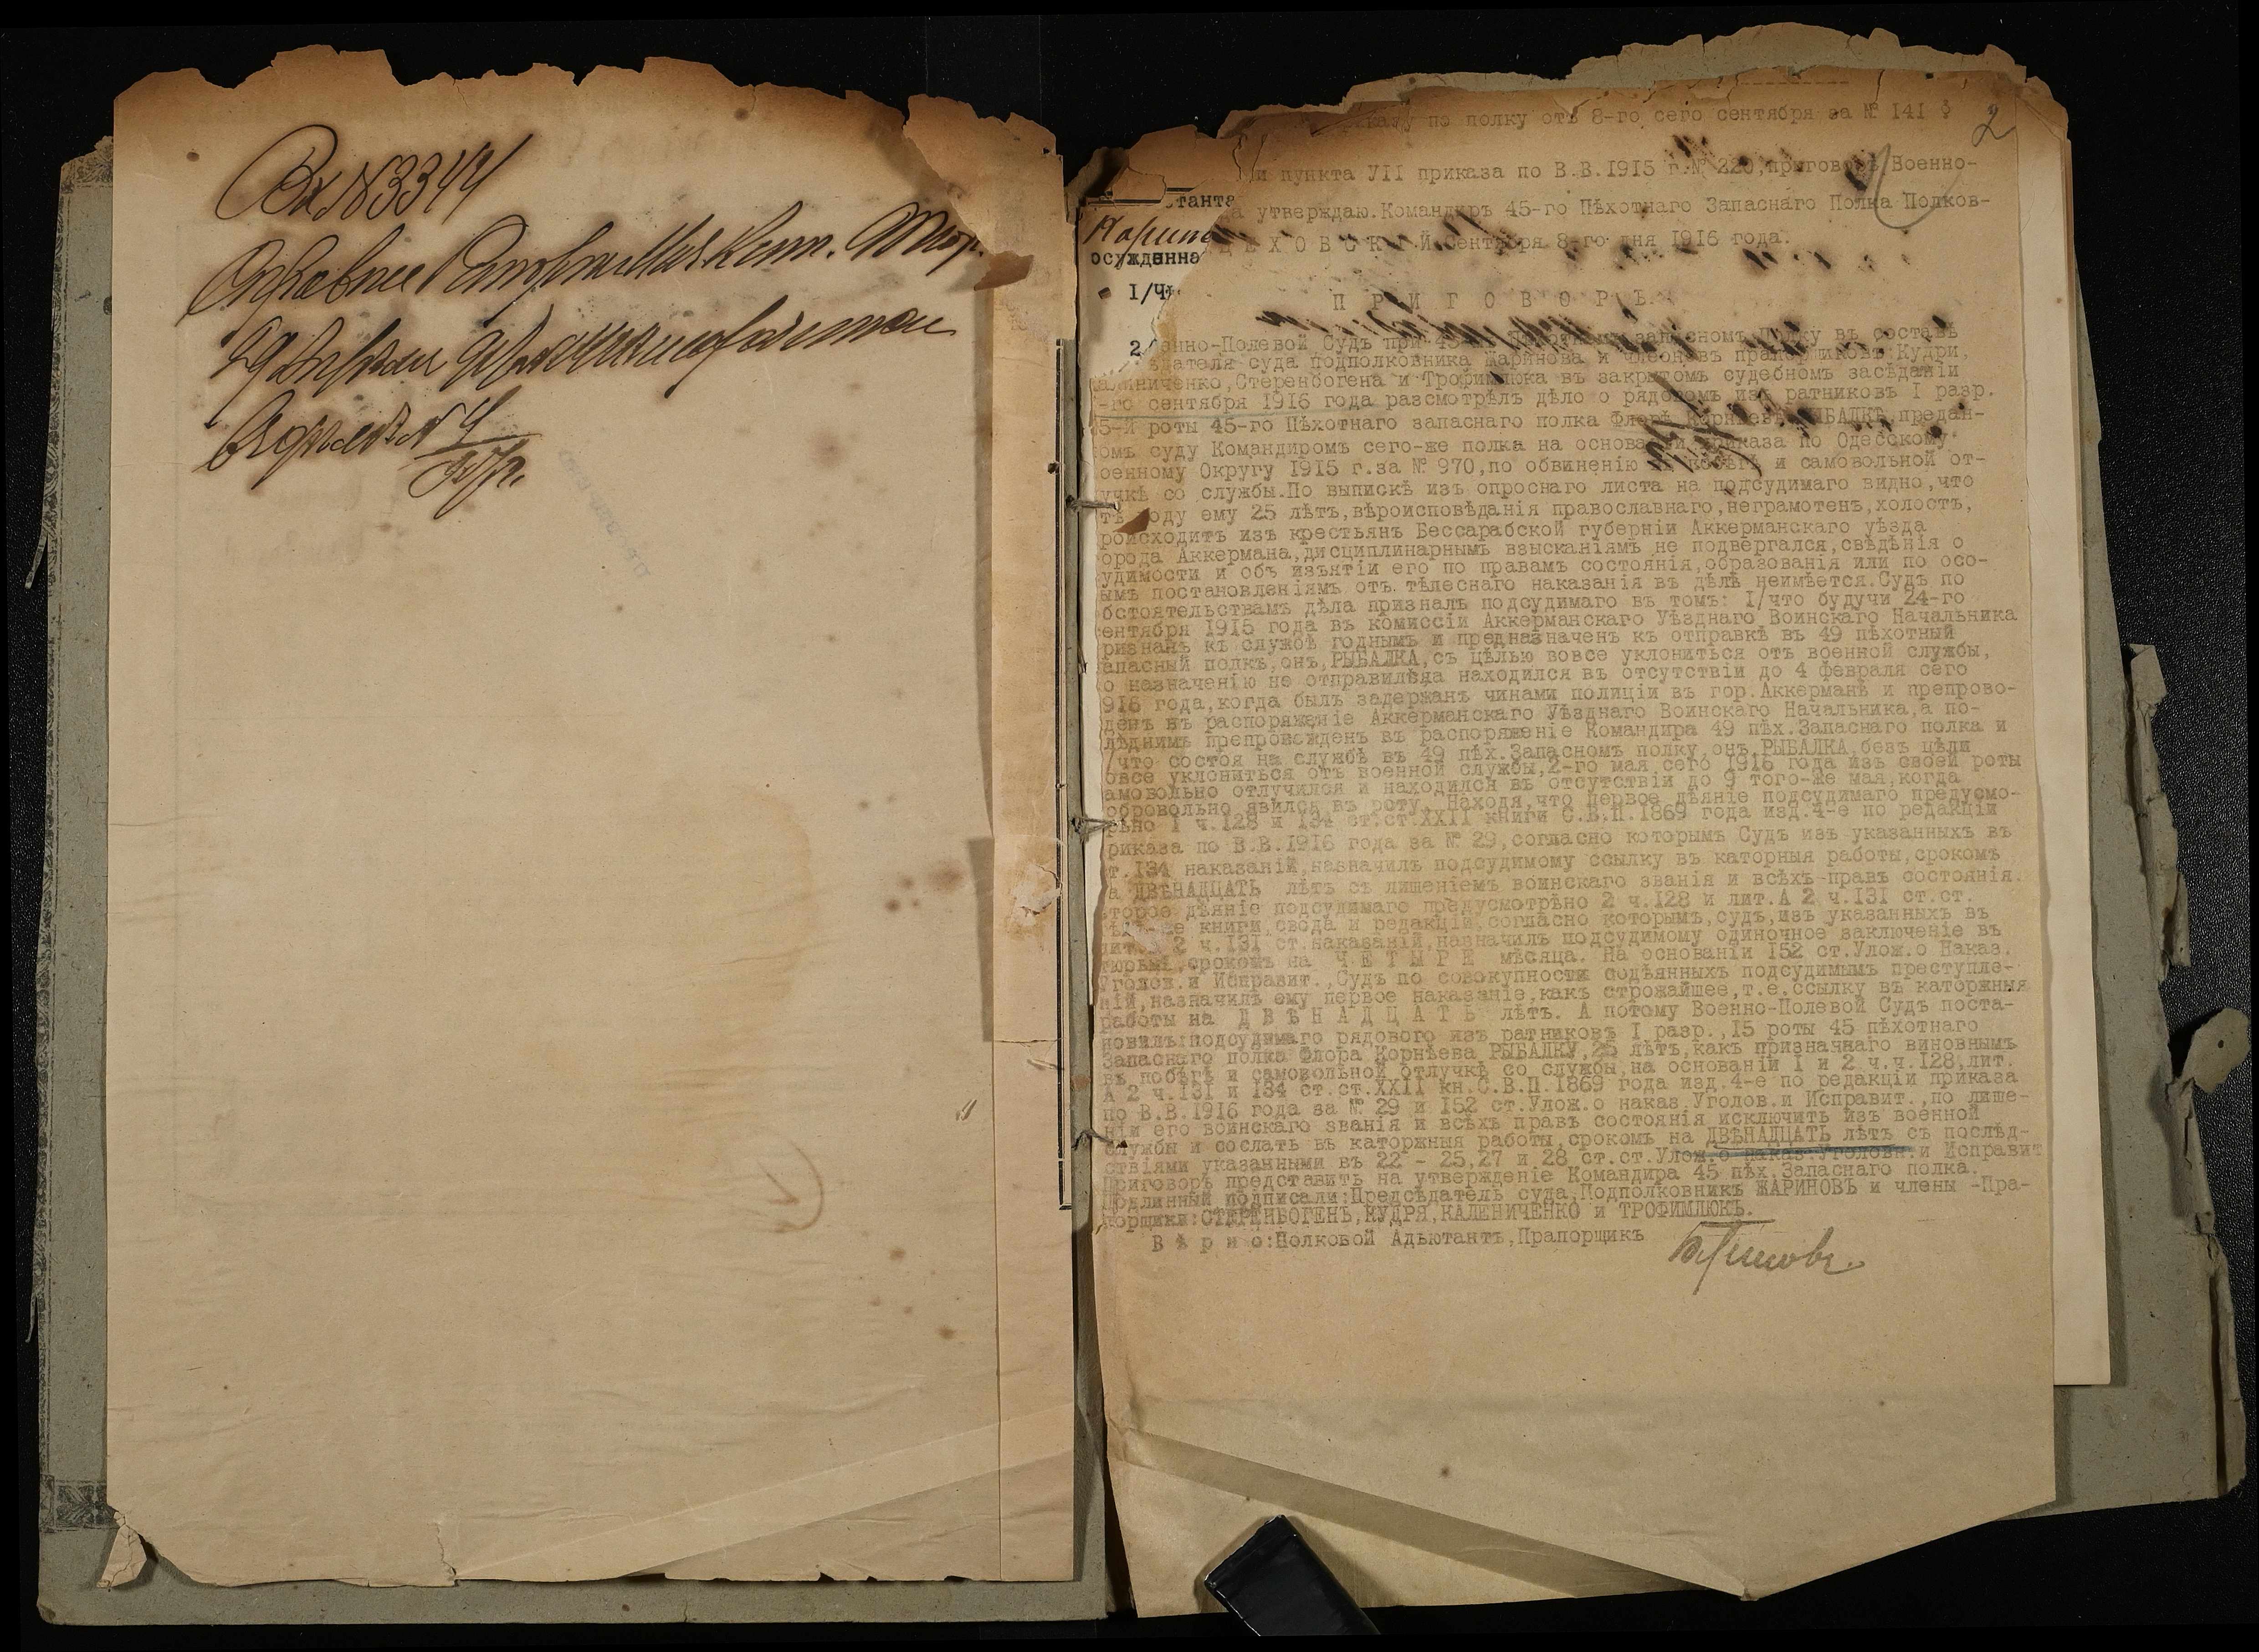 Вх №3344
29
2
по полку отъ 8-го сего сентября за № 141 §
и пункта УII приказа по В.В.1915 г.№ 220,приговоръ Военно-
танта
утверждаю.Командиръ 45-го Пѣхотнаго Запаснаго Полка Полков-
Х О В С К І Й.Сентября 8-го дня 1916 года.
осужденна
I/
П Р И Г О В О Р Ъ.
2/
нно-Полевой Судъ при запасномъ Полку въ составѣ
дателя суда подполковника Жаринова и членовъ прапорщиковъ:Кудри,
линиченко,Стеренбогена и Трофимлюка въ закрытомъ судебномъ засѣданіи
-го сентября 1916 года разсмотрѣлъ дѣло о рядовомъ изъ ратниковъ I разр.
5-й роты 45-го Пѣхотнаго запаснаго полка Флорѣ Корнѣевѣ РЫБАЛКЕ,предан-
омъ суду Командиромъ сего-же полка на основаніи приказа по Одесскому
оенному Округу 1915 г.за № 970,по обвиненію въ побѣгѣ и самовольной от-
учкѣ со службы.По выпискѣ изъ опроснаго листа на подсудимаго видно,что
году ему 25 лѣтъ,вѣроисповѣданія православнаго,неграмотенъ,холостъ,
роисходитъ изъ крестьянъ Бессарабской губерніи Аккерманскаго уѣзда
орода Аккермана,дисциплинарнымъ взысканіямъ не подвергался,свѣдѣнія о
удимости и объ изъятіи его по правамъ состоянія,образованія или по осо-
ымъ постановленіямъ отъ тѣлеснаго наказанія въ дѣлѣ неимѣется.Судъ по
бстоятельствамъ дѣла призналъ подсудимаго въ томъ: I/что будучи 24-го
ентября 1915 года въ комиссіи Аккерманскаго Уѣзднаго Воинскаго Начальника
ризнанъ къ службѣ годнымъ и предназначенъ къ отправкѣ въ 49 пѣхотный
апасный полкъ,онъ,РЫБАЛКА,съ цѣлью вовсе уклониться отъ военной службы,
о назначенію не отправился,а находился въ отсутствіи до 4 февраля сего
916 года,когда былъ задержанъ чинами полиціи въ гор.Аккерманѣ и препрово-
денъ въ распоряженіе Аккерманскаго Уѣзднаго Воинскаго Начальника,а по-
лѣднимъ препровожденъ въ распоряженіе Командира 49 пѣх.Запаснаго полка и
/что состоя на службѣ въ 49 пѣх.Запасномъ полку,онъ,РЫБАЛКА,безъ цѣли
овсе уклониться отъ военной службы,2-го мая сего 1916 года изъ своей роты
амовольно отлучился и находился въ отсутствіи до 9 того-же мая,когда
обровольно явился въ роту. Находя,что первое дѣяніе подсудимаго предусмо-
рѣно I ч.128 и 134 ст.ст.XXII книги С.В.П.1869 года изд.4-е по редакціи
риказа по В.В.1916 года за № 29,согласно которымъ Судъ изъ указанныхъ въ
т.134 наказаній,назначилъ подсудимому ссылку въ каторныя работы,срокомъ
а ДВѢНАДЦАТЬ лѣтъ съ лишеніемъ воинскаго званія и всѣхъ правъ состоянія.
торое дѣяніе подсудимаго предусмотрѣно 2 ч.128 и лит.А 2 ч.131 ст.ст.
же книги свода и редакціи,согласно которымъ,судъ,изъ указанныхъ въ
лит. 2 ч.131 ст.наказаній,назначилъ подсудимому одиночное заключеніе въ
тюрьмѣ,срокомъ на Ч Е Т Ы Р Е мѣсяца. На основаніи 152 ст.Улож.о Наказ.
Уголов.и Исправит.,Судъ по совокупности содѣянныхъ подсудимымъ преступле-
ній,назначилъ ему первое наказаніе,какъ строжайшее,т.е.ссылку въ каторжныя
работы на Д В Ѣ Н А Д Ц А Т Ь лѣтъ. А потому Военно-Полевой Судъ поста-
новилъ:подсудимаго рядового изъ ратниковъ I разр.,15 роты 45 пѣхотнаго
Запаснаго полка Флора Корнѣева РЫБАЛКУ,25 лѣтъ,какъ призначнаго виновнымъ
въ побѣгѣ и самовольной отлучкѣ со службы,на основаніи I и 2 ч.ч.128,лит.
А 2 ч.131 и 134 ст.ст.XXII кн.С.В.П.1869 года изд.4-е по редакціи приказа
по В.В.1916 года за № 29 и 152 ст.Улож.о наказ.Уголов.и Исправит.,по лише-
ніи его воинскаго званія и всѣхъ правъ состоянія исключить изъ военной
службы и сослать въ каторжныя работы,срокомъ на ДВѢНАДЦАТЬ лѣтъ съ послѣд-
ствіями указанными въ 22 - 25,27 и 28 ст.ст.Улож.о наказ.Уголовн.и Исправит
Приговоръ представить на утвержденіе Командира 45 пѣх.Запаснаго полка.
Подлинный подписали:Предсѣдатель суда,Подполковникъ ЖАРИНОВЪ и члены -Пра-
порщики:СТЕРЕНБОГЕНЪ,КУДРЯ,КАЛЕНИЧЕНКО и ТРОФИМЛЮКЪ.
В ѣ р н о:Полковой Адъютантъ,Прапорщикъ